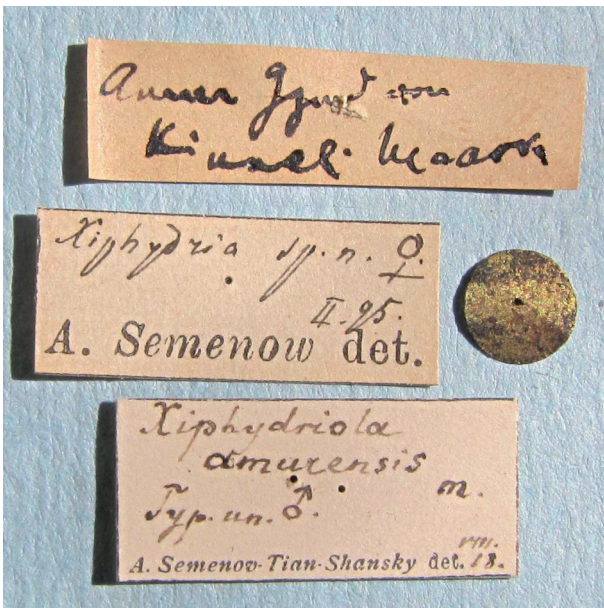 Amur
Kinseli. Maack
Xiphydria sp. n. ♀.
II. 95.
A. Semenow det.
Xiphydriola
amurensis m.
Typ. un. ♂.
VIII.
A. Semenov-Tian-Shansky det. 18.